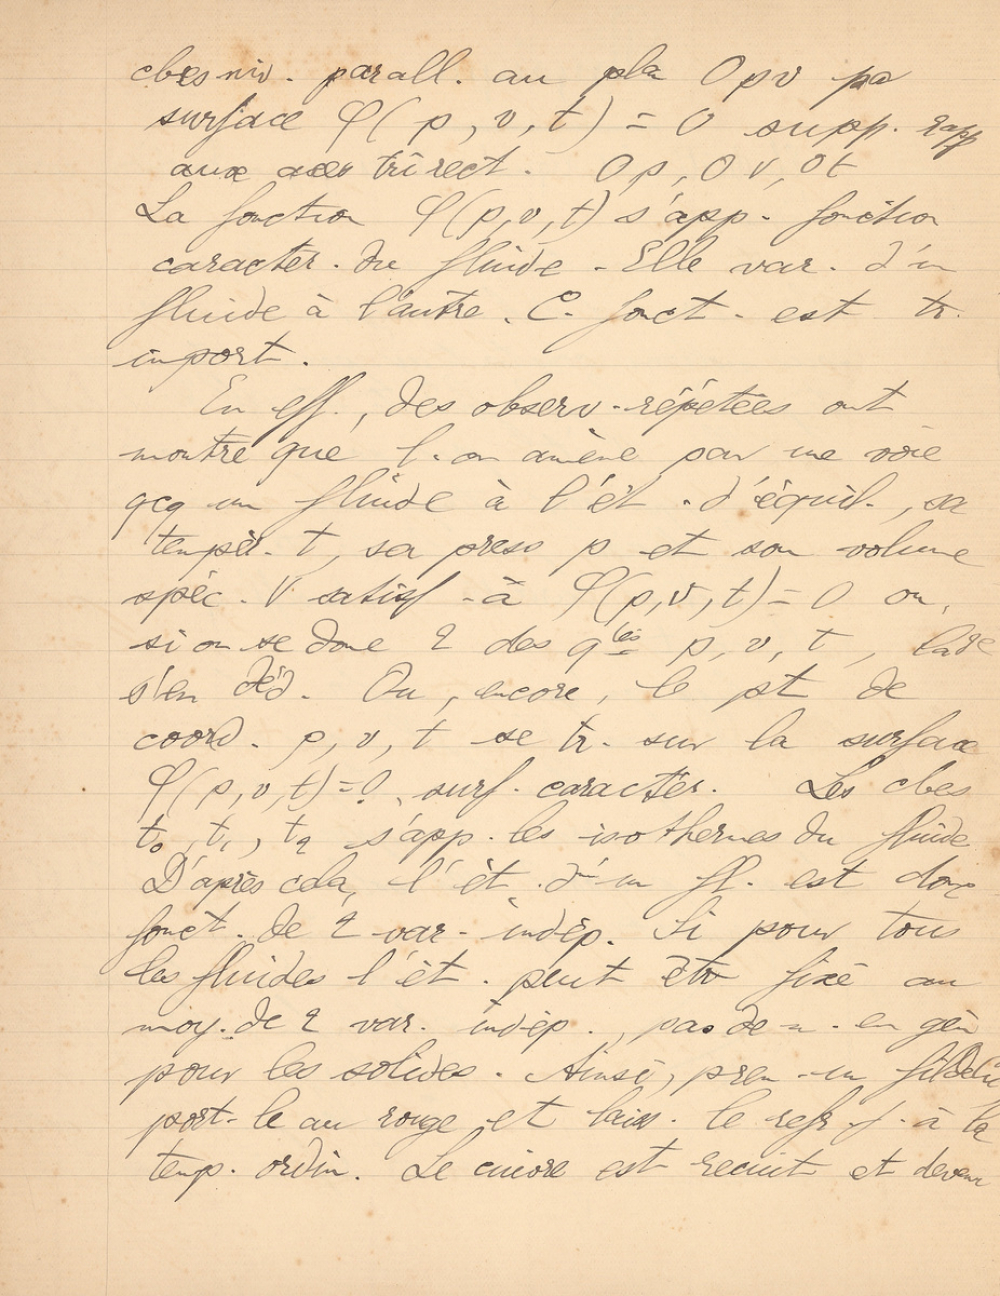 cbes niv. parall. au plan Opv pa
surface φ(p, v, t) = 0 supp. rapp
aux axes trirect. Op, Ov, Ot
La fonction φ(p, v, t) s'app. fonction
caractér. du fluide - Elle var. d'un
fluide à l'autre. C. fonct. est tr.
import.
En eff., des observ. répétées ont
montré que l. on amène par une voie
qcq un fluide à l'ét. d'équil., sa
tempér. t, sa press p et son volume
spéc. v satisf. à φ(p, v, t) = 0 ou,
si on se done 2 des qtés p, v, t,
s'en déd. Ou, encore, le pt de
coord. p, v, t se tr. sur la surface
φ(p, v, t) = 0, surf. caractér. Les cbes
t0, t1, t2 s'app. les isothermes du fluide
D'après cela, l'ét. d'un fl. est donc
fonct. de 2 var. indép. Si pour tous
les fluides l'ét. peut être fixé au
moy. de 2 var. indép., pas de m. en gén
pour les solides. Ainsi, pren. un fil de
port. le au rouge et laiss. le refr. j. à la
temp. ordin. Le cuivre est recuit et devenu